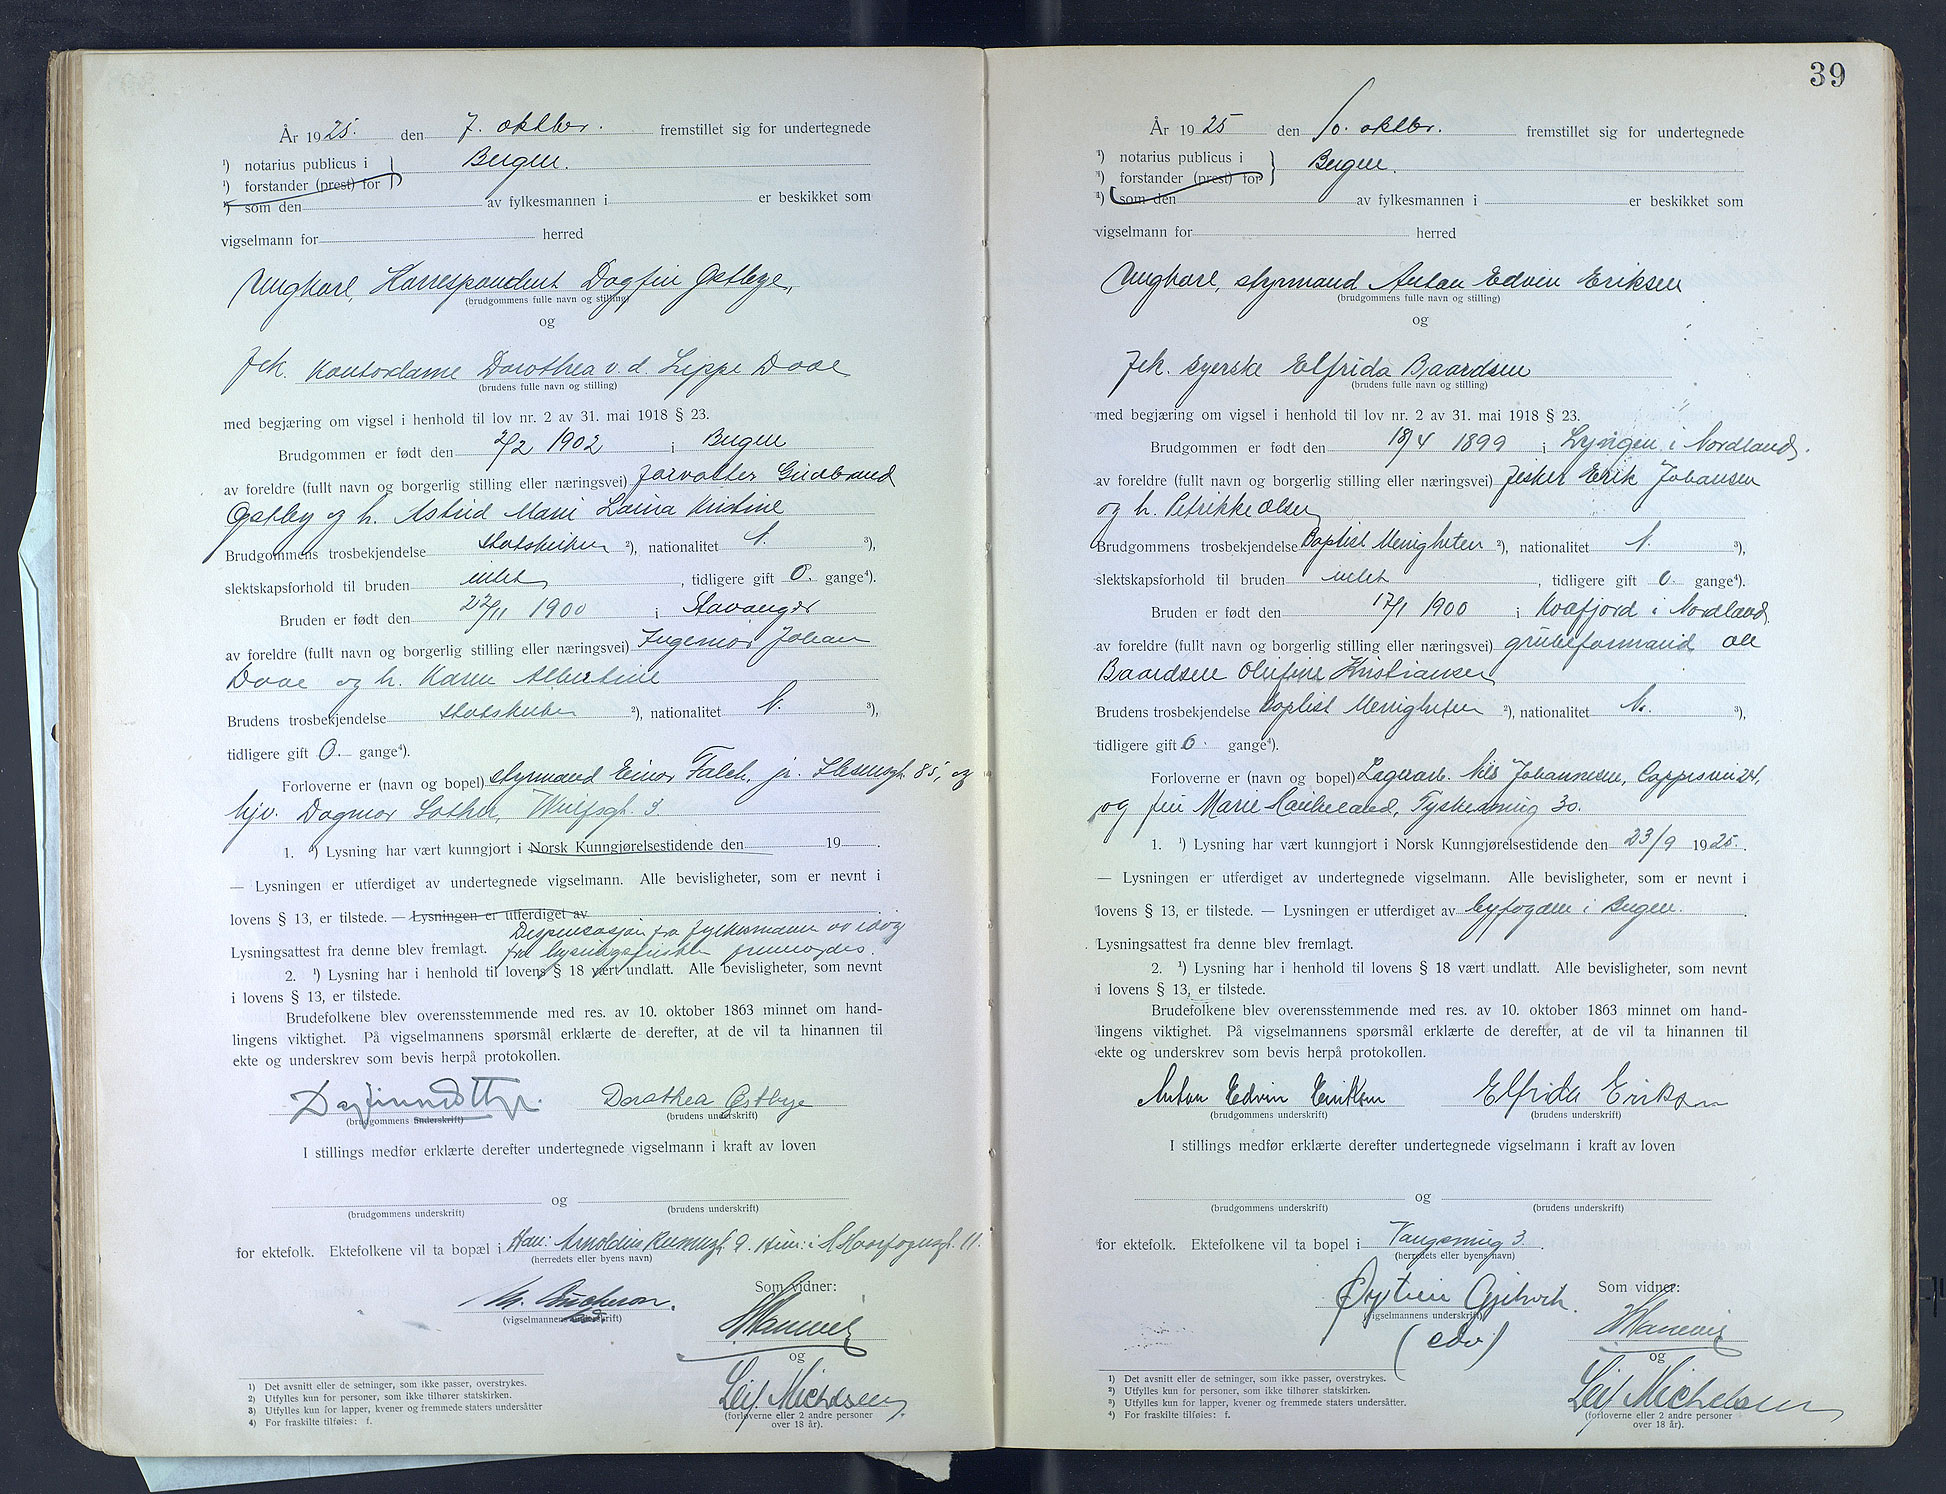 År 1925. den 7. oktbr. fremstillet sig for undertegnede
¹) notarius publicus i } Bergen.
¹) forstander (prest) for
¹) som den av fylkesmannen i er beskikket som
vigselmann for herred
Ungkarl, Korrespondent Dagfin Østbye,
(brudgommens fulle navn og stilling)
og
Frk. Kontordame Dorothea v. d. Lippe Daae
(brudens fulle navn og stilling)
med begjæring om vigsel i henhold til lov nr. 2 av 31. mai 1918 § 23.
Brudgommen er født den 2/2 1902 i Bergen
av foreldre (fullt navn og borgerlig stilling eller næringsvei) forvalter Gudbrand
Østby og h. Astrid Marie Laura Kristine
Brudgommens trosbekjendelse statskirken ²), nationalitet N. ³),
slektskapsforhold til bruden intet, tidligere gift 0. gange⁴).
Bruden er født den 22/11 1900 i Stavanger
av foreldre (fullt navn og borgerlig stilling eller næringsvei) Ingeniør Johan
Daae og h. Karen Albertine
Brudens trosbekjendelse statskirken ²), nationalitet N. ³),
tidligere gift 0. gange⁴).
Forloverne er (navn og bopel) styrmand Einar Falch, jr. 85, og
hjv. Dagmar Lothe, Wulfsgt. 3.
1. ¹) Lysning har vært kunngjort i Norsk Kunngjørelsestidende den 19 .
— Lysningen er utferdiget av undertegnede vigselmann. Alle bevisligheter, som er nevnt i
lovens § 13, er tilstede. — Lysningen er utferdiget av
Dispensasjon fra fylkesmannen av idag
Lysningsattest fra denne blev fremlagt. fra lysningsfristen fremlagdes.
2. ¹) Lysning har i henhold til lovens § 18 vært undlatt. Alle bevisligheter, som nevnt
i lovens § 13, er tilstede.
Brudefolkene blev overensstemmende med res. av 10. oktober 1863 minnet om hand-
lingens viktighet. På vigselmannens spørsmål erklærte de derefter, at de vil ta hinannen til
ekte og underskrev som bevis herpå protokollen.
Dagfinn Østbye. Dorothea Østbye
(brudgommens underskrift) (brudens underskrift)
I stillings medfør erklærte derefter undertegnede vigselmann i kraft av loven
og
(brudgommens underskrift) (brudens underskrift)
for ektefolk. Ektefolkene vil ta bopæl i Han: 9. Hun: i H. Haarfagresgt. 11.
(herredets eller byens navn)
Som vidner:
(vigselmannens underskrift)
og
Leif Michelsen
(forloverne eller 2 andre personer
over 18 år).
1) Det avsnitt eller de setninger, som ikke passer, overstrykes.
2) Utfylles kun for personer, som ikke tilhører statskirken.
3) Utfylles kun for lapper, kvener og fremmede staters undersåtter
4) For fraskilte tilføies: f.
39
År 1925 den 10. oktbr. fremstillet sig for undertegnede
¹) notarius publicus i } Bergen.
¹) forstander (prest) for
¹) som den av fylkesmannen i er beskikket som
vigselmann for herred
Ungkarl, styrmand Anton Edvin Eriksen
(brudgommens fulle navn og stilling)
og
Frk. syerske Elfrida Baardsen
(brudens fulle navn og stilling)
med begjæring om vigsel i henhold til lov nr. 2 av 31. mai 1918 § 23.
Brudgommen er født den 18/4 1899 i Lyngen i Nordland.
av foreldre (fullt navn og borgerlig stilling eller næringsvei) fisker Erik Johansen
og h. Petrikke Olsen
Brudgommens trosbekjendelse Baptist Menigheten ²), nationalitet N. ³),
slektskapsforhold til bruden intet, tidligere gift 0. gange⁴).
Bruden er født den 17/1 1900 i Kvæfjord i Nordland
av foreldre (fullt navn og borgerlig stilling eller næringsvei) grubeformand Ole
Baardsen Olufine Kristiansen
Brudens trosbekjendelse Baptist Menigheten ²), nationalitet N. ³),
tidligere gift 0. gange⁴).
Forloverne er (navn og bopel) Lagerarb. Nils Johannesen, Cappesvei 24,
og fru Marie Haukeland, Tyskesmug 30.
1. ¹) Lysning har vært kunngjort i Norsk Kunngjørelsestidende den 23/9 1925.
— Lysningen er utferdiget av undertegnede vigselmann. Alle bevisligheter, som er nevnt i
lovens § 13, er tilstede. — Lysningen er utferdiget av byfogden i Bergen.
Lysningsattest fra denne blev fremlagt.
2. ¹) Lysning har i henhold til lovens § 18 vært undlatt. Alle bevisligheter, som nevnt
i lovens § 13, er tilstede.
Brudefolkene blev overensstemmende med res. av 10. oktober 1863 minnet om hand-
lingens viktighet. På vigselmannens spørsmål erklærte de derefter, at de vil ta hinannen til
ekte og underskrev som bevis herpå protokollen.
Anton Edvin Eriksen Elfrida Eriksen
(brudgommens underskrift) (brudens underskrift)
I stillings medfør erklærte derefter undertegnede vigselmann i kraft av loven
og
(brudgommens underskrift) (brudens underskrift)
for ektefolk. Ektefolkene vil ta bopel i Vangsmug 3.
(herredets eller byens navn)
Som vidner:
Øystein
(vigselmannens underskrift)
(edv)
og
Leif Michelsen
(forloverne eller 2 andre personer
over 18 år).
¹) Det avsnitt eller de setninger, som ikke passer, overstrykes.
²) Utfylles kun for personer, som ikke tilhører statskirken.
³) Utfylles kun for lapper, kvener og fremmede staters undersåtter.
⁴) For fraskilte tilføies: f.